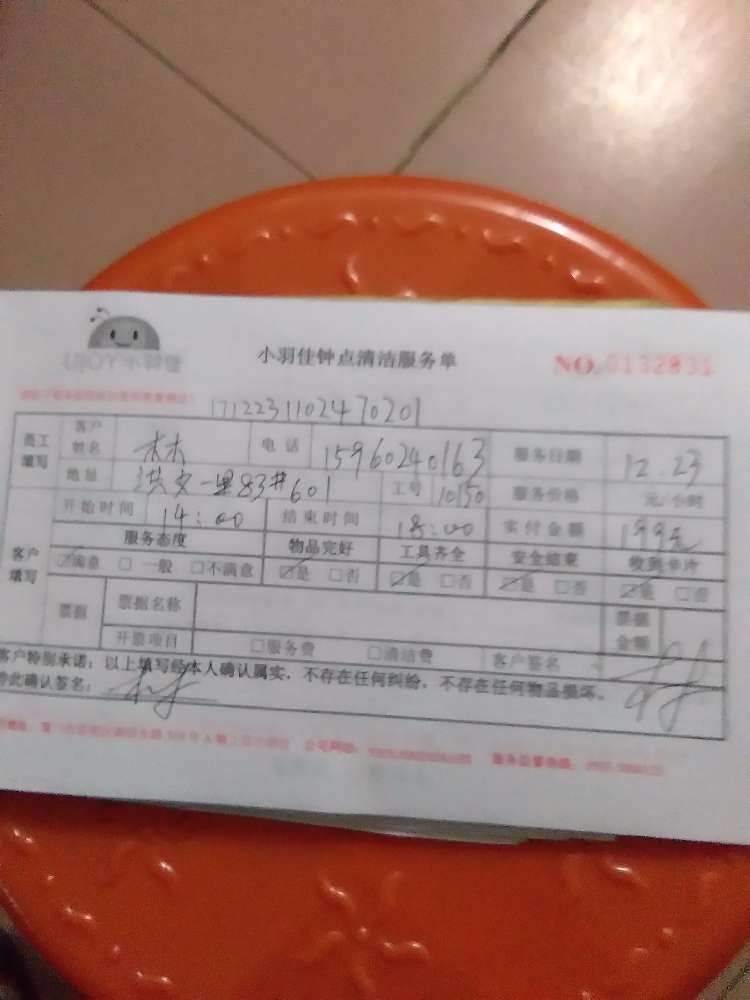 小羽佳钟点清洁服务单 NO.0132831
171223110247020​1
员工填写 客户姓名 林 电话 15960240163 服务日期 12.23
地址 洪文一里83#601 工号 10150 服务价格 元/小时
开始时间 14:00 结束时间 18:00 实付金额 199元
客户填写 服务态度 物品完好 工具齐全 安全结束 收到卡片
☑满意 □一般 □不满意 ☑是 □否 ☑是 □否 ☑是 □否 ☑是 □否
票据 票据名称 票据金额
开票项目 □服务费 □清洁费 客户签名
客户特别承诺：以上填写经本人确认属实，不存在任何纠纷，不存在任何物品损坏。
特此确认签名：